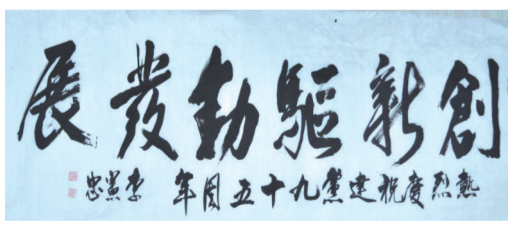 創新驅動發展
熱烈慶祝建黨九十五周年 李憲忠